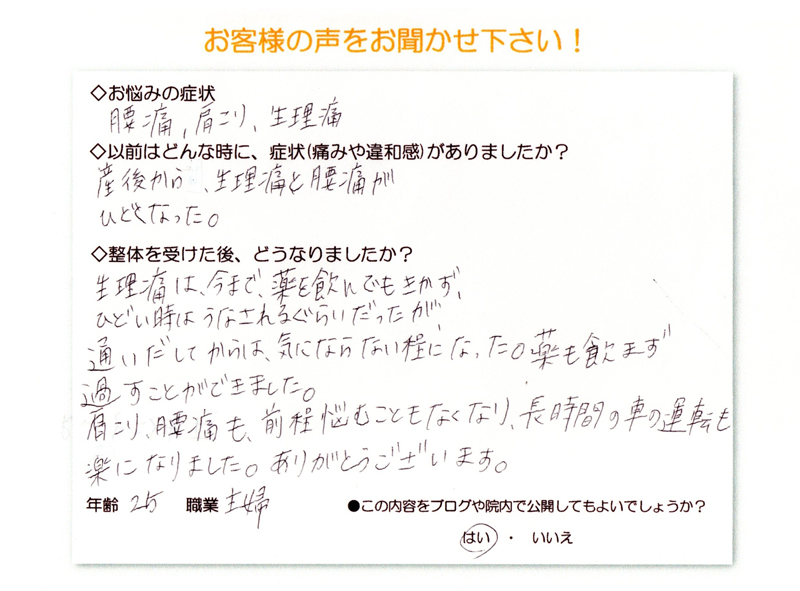 お客様の声をお聞かせ下さい！
◇お悩みの症状
腰痛，肩こり、生理痛
◇以前はどんな時に、症状(痛みや違和感)がありましたか？
産後から、生理痛と腰痛が
ひどくなった。
◇整体を受けた後、どうなりましたか？
生理痛は、今まで、薬を飲んでもきかず、
ひどい時はうなされるぐらいだったが、
通いだしてからは、気にならない程になった。薬も飲まず
過すことができました。
肩こり、腰痛も、前程悩むこともなくなり、長時間の車の運転も
楽になりました。ありがとうございます。
年齢 25 職業 主婦 ●この内容をブログや院内で公開してもよいでしょうか？
はい ・ いいえ